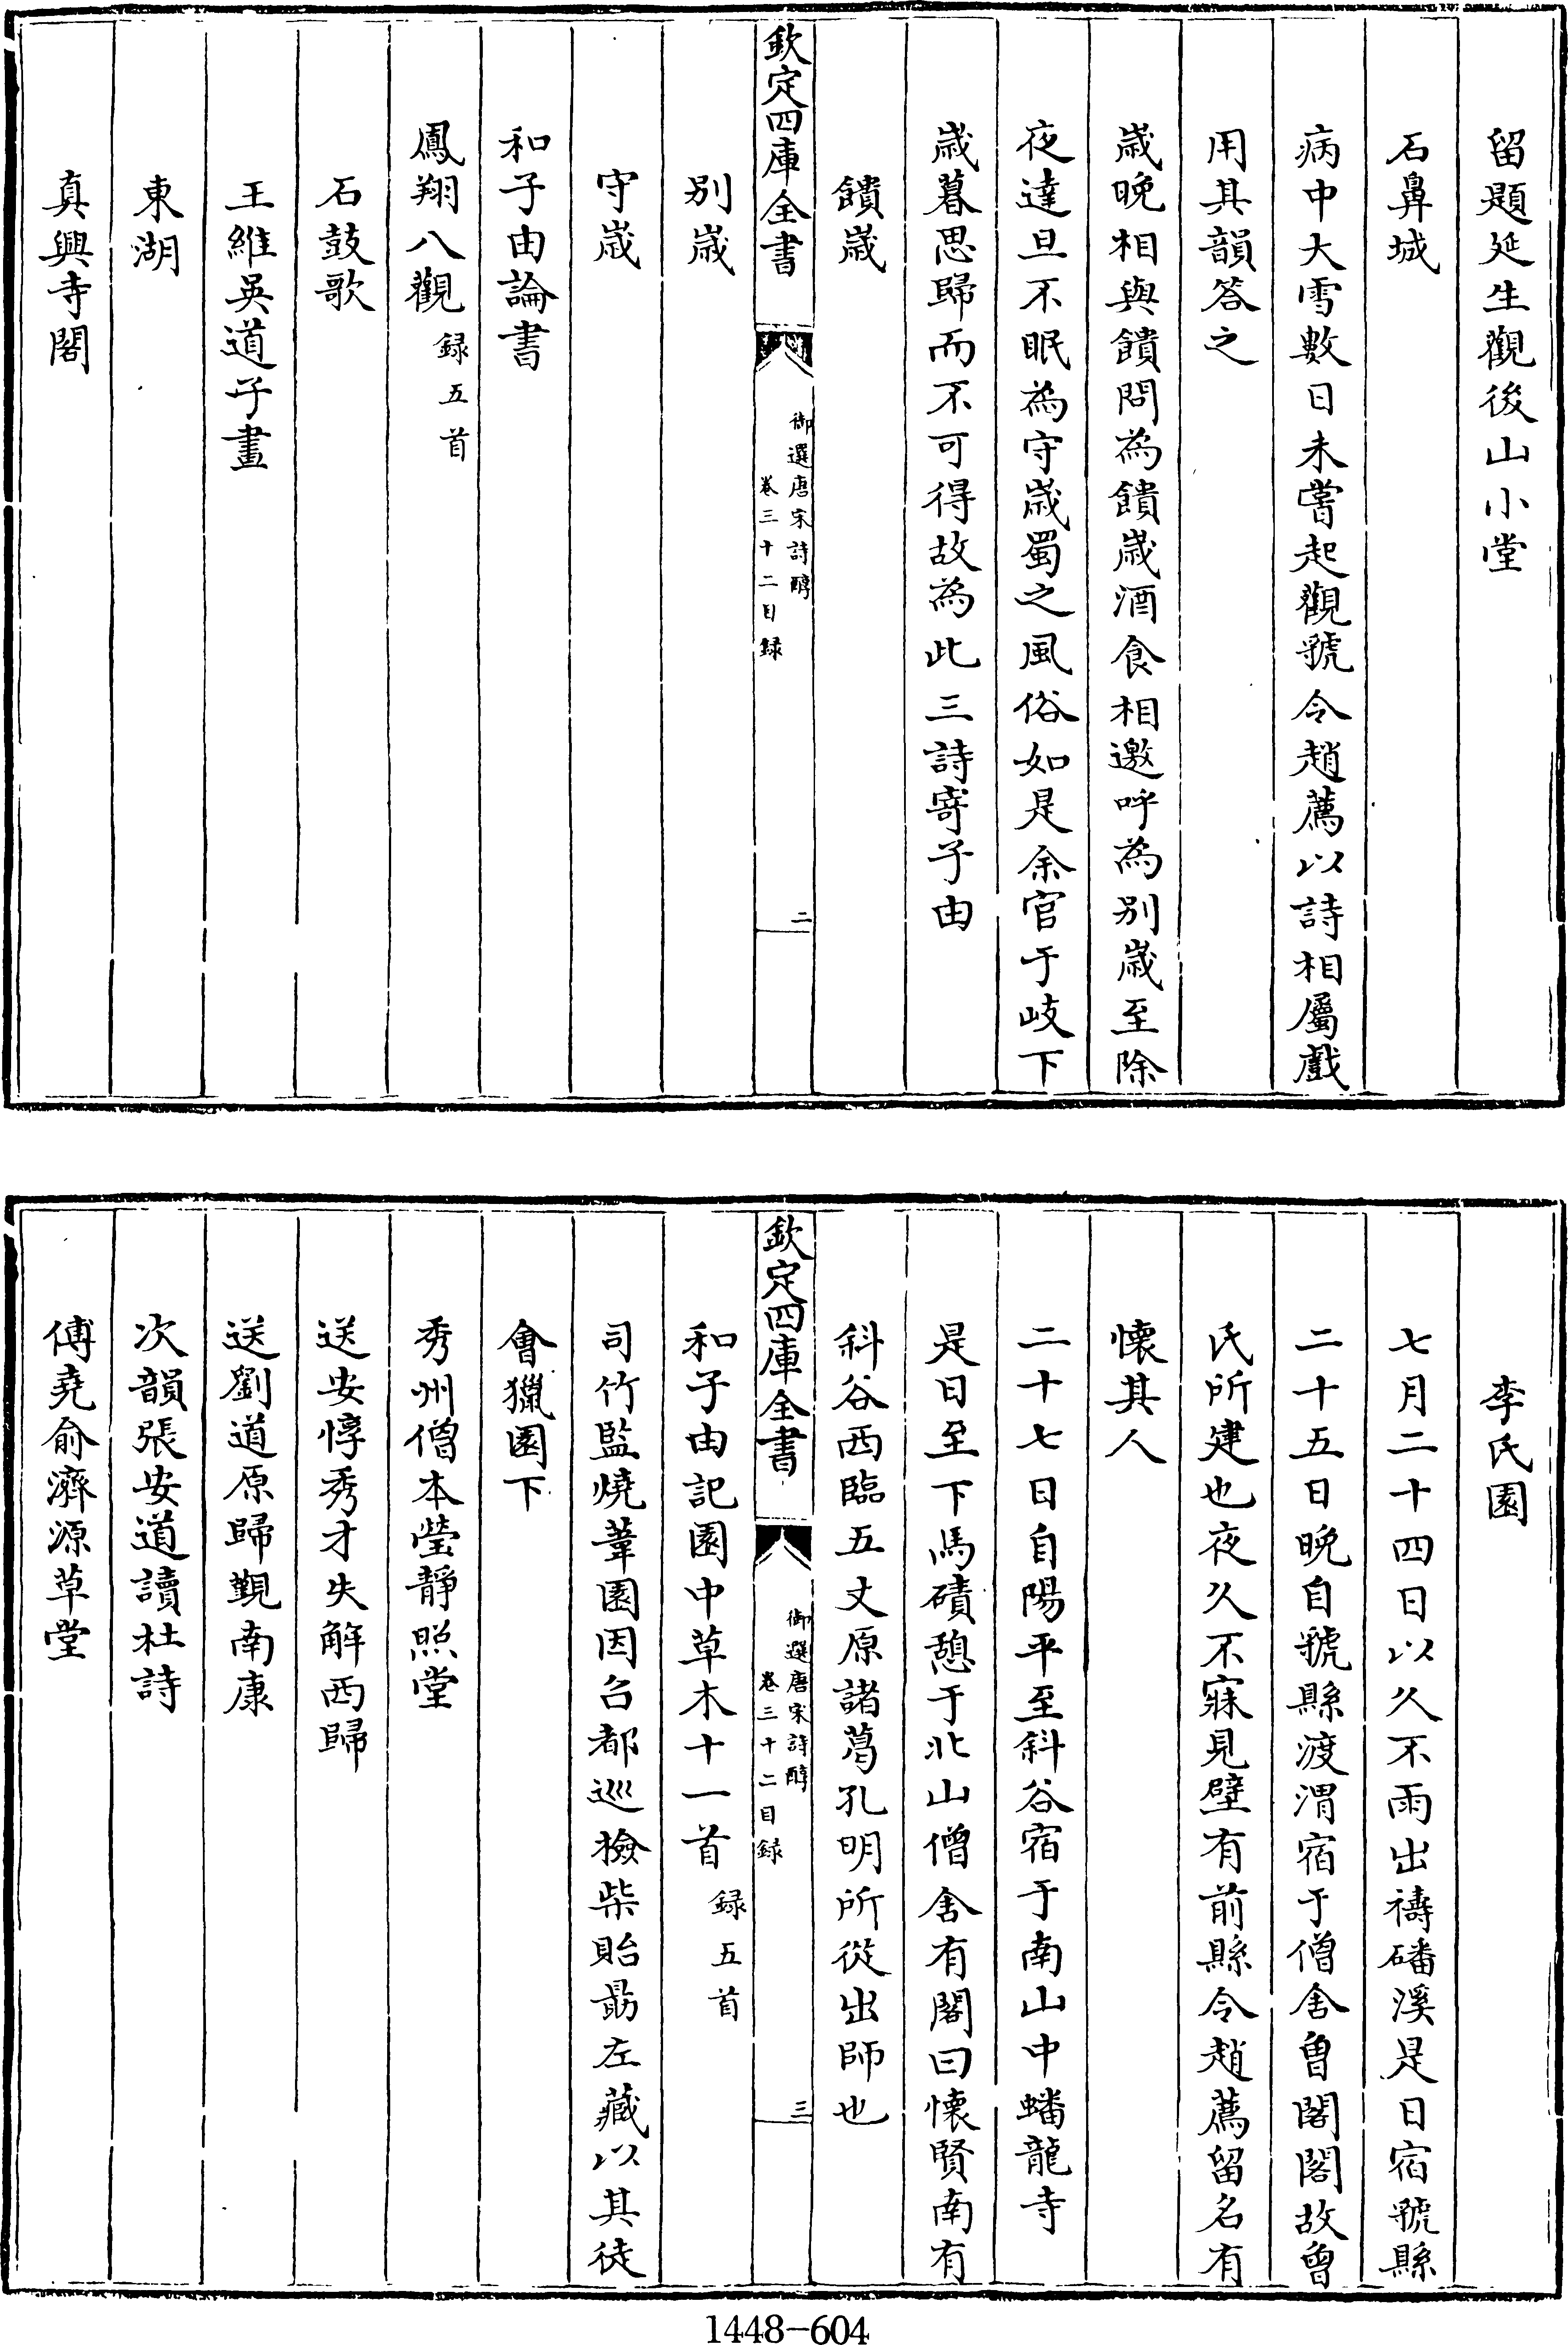 留題延生觀後山小堂
石鼻城
病中大雪數日未嘗起觀虢令趙薦以詩相屬戲
用其韻答之
歲晚相與饋問為饋歲酒食相邀呼為別歲至除
夜達旦不眠為守歲蜀之風俗如是余官于岐下
歲暮思歸而不可得故為此三詩寄子由
饋歲
欽定四庫全書
御選唐宋詩醇
卷三十二目録
二
別歲
守歲
和子由論書
鳳翔八觀 録五首
石鼓歌
王維吳道子畫
東湖
真興寺閣
李氏園
七月二十四日以久不雨出禱磻溪是日宿虢縣
二十五日晚自虢縣渡渭宿于僧舍曾閣閣故曾
氏所建也夜久不寐見壁有前縣令趙薦留名有
懷其人
二十七日自陽平至斜谷宿于南山中蟠龍寺
是日至下馬磧憩于北山僧舍有閣曰懷賢南有
斜谷西臨五丈原諸葛孔明所從出師也
欽定四庫全書
御選唐宋詩醇
卷三十二目録
三
和子由記園中草木十一首 録五首
司竹監燒葦園因召都巡檢柴貽勗左藏以其徒
會獵園下
秀州僧本瑩靜照堂
送安惇秀才失解西歸
送劉道原歸覲南康
次韻張安道讀杜詩
傅堯俞濟源草堂
1448-604